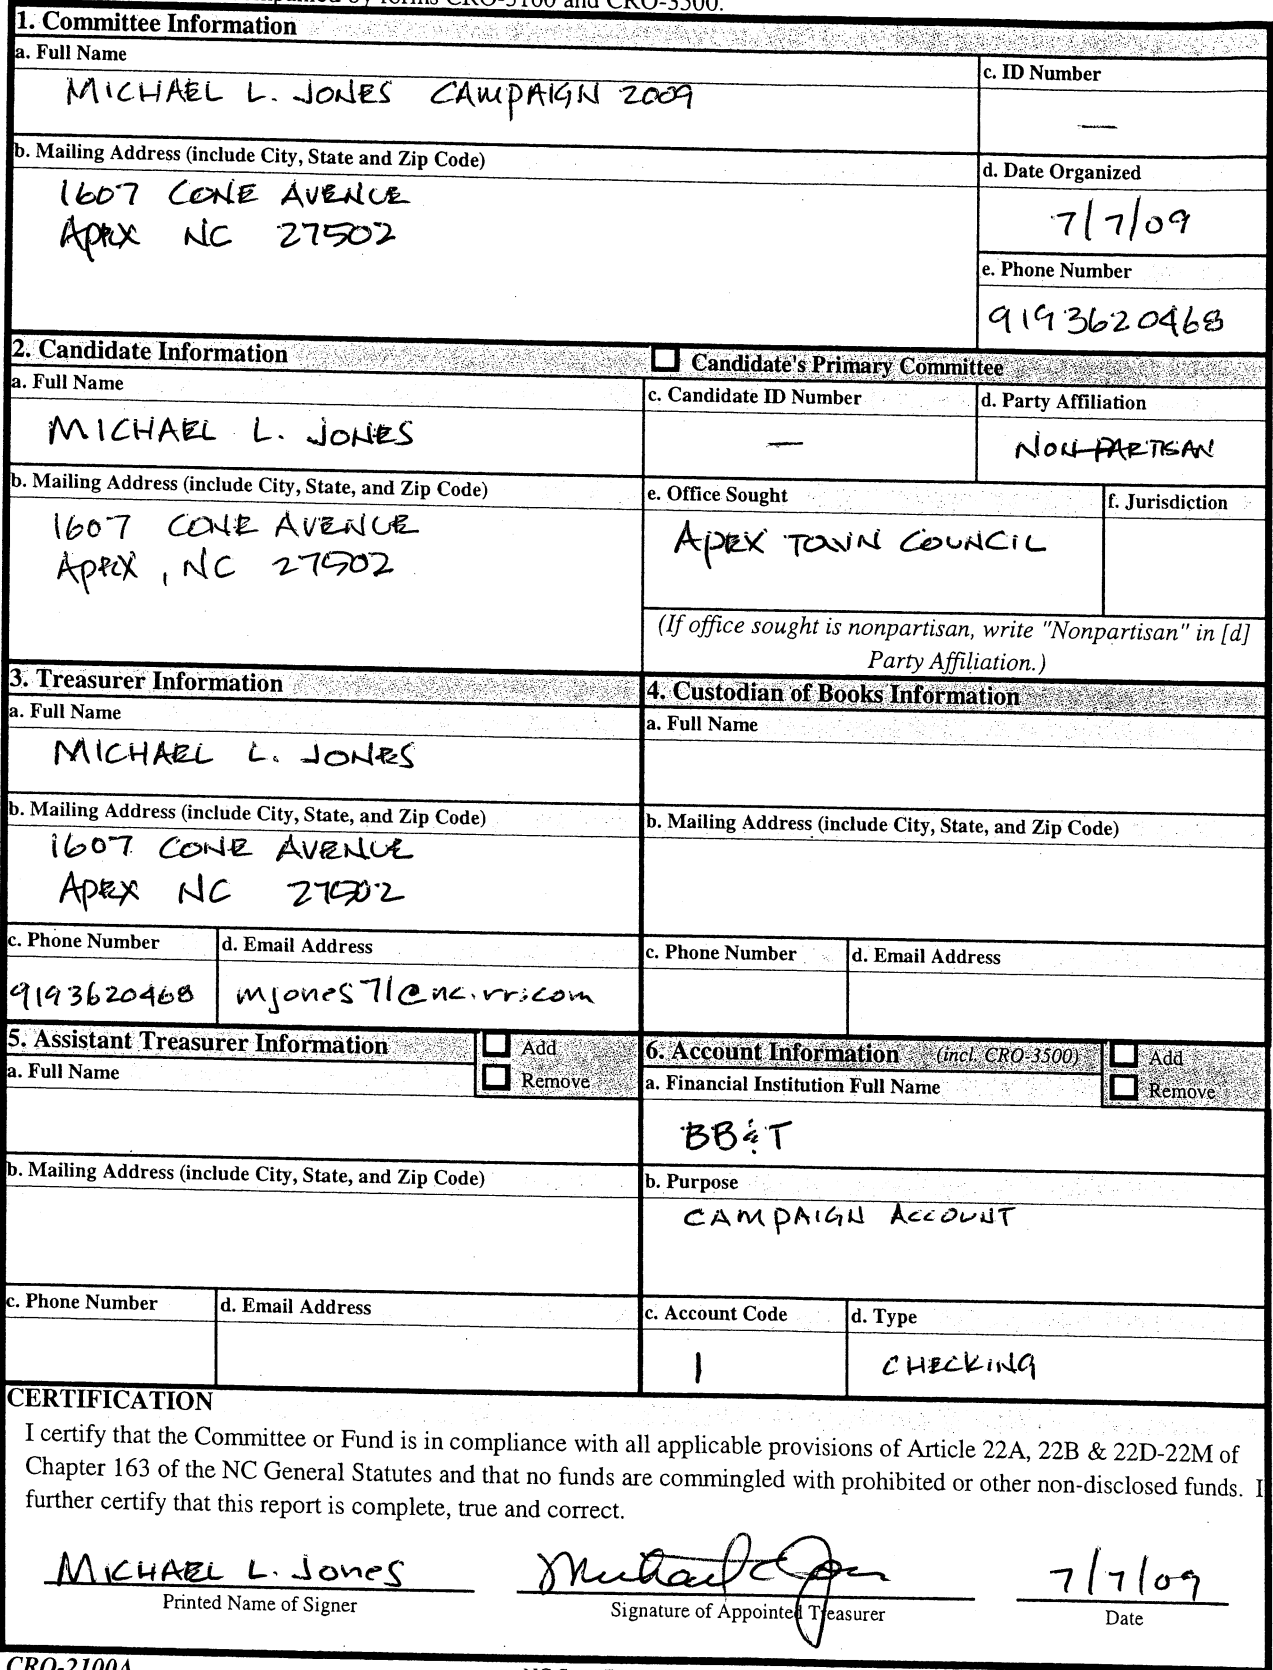 CRO-3100 and CRO-3500.
1. Committee Information
a. Full Name
MICHAEL L. JONES CAMPAIGN 2009
c. ID Number
—
b. Mailing Address (include City, State and Zip Code)
1607 CONE AVENUE
APEX NC 27502
d. Date Organized
7/7/09
e. Phone Number
9193620468
2. Candidate Information
Candidate's Primary Committee
a. Full Name
MICHAEL L. JONES
c. Candidate ID Number
—
d. Party Affiliation
NON-PARTISAN
b. Mailing Address (include City, State, and Zip Code)
1607 CONE AVENUE
APEX, NC 27502
e. Office Sought
APEX TOWN COUNCIL
f. Jurisdiction
(If office sought is nonpartisan, write "Nonpartisan" in [d]
Party Affiliation.)
3. Treasurer Information
a. Full Name
MICHAEL L. JONES
b. Mailing Address (include City, State, and Zip Code)
1607 CONE AVENUE
APEX NC 27502
c. Phone Number
9193620468
d. Email Address
mjones71@nc.rr.com
4. Custodian of Books Information
a. Full Name
b. Mailing Address (include City, State, and Zip Code)
c. Phone Number
d. Email Address
5. Assistant Treasurer Information
Add
Remove
a. Full Name
b. Mailing Address (include City, State, and Zip Code)
c. Phone Number
d. Email Address
6. Account Information (incl. CRO-3500)
Add
Remove
a. Financial Institution Full Name
BB&T
b. Purpose
CAMPAIGN ACCOUNT
c. Account Code
1
d. Type
CHECKING
CERTIFICATION
I certify that the Committee or Fund is in compliance with all applicable provisions of Article 22A, 22B & 22D-22M of
Chapter 163 of the NC General Statutes and that no funds are commingled with prohibited or other non-disclosed funds. I
further certify that this report is complete, true and correct.
MICHAEL L. JONES
Printed Name of Signer
Michael L Jones
Signature of Appointed Treasurer
7/7/09
Date
CRO-2100A